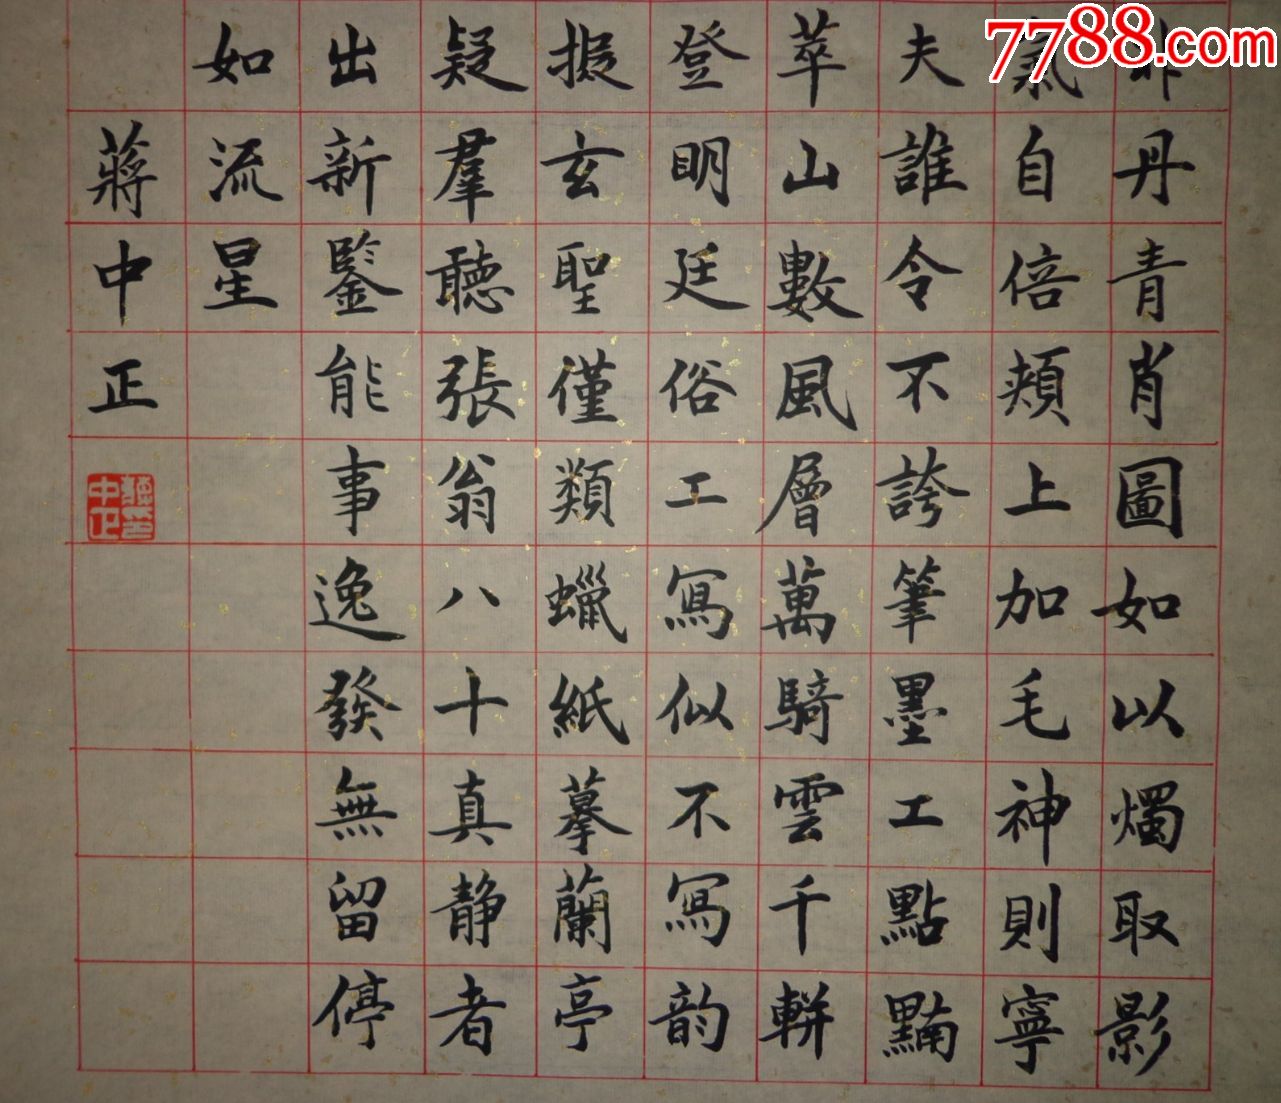 7788.com
丹青肖圖如以燭取影
氣自倍頰上加毛神則寧
夫誰令不誇筆墨工點黵
萃山數風層萬騎雲千輧
登明廷俗工寫似不寫韵
擬玄聖僅類蠟紙摹蘭亭
疑羣聽張翁八十真静者
出新鑒能事逸發無留停
如流星
蔣中正